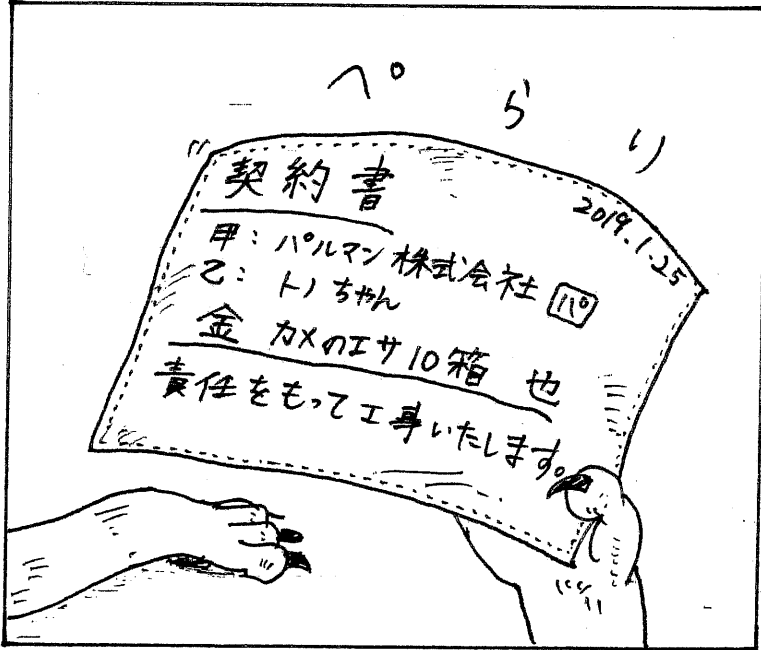 ぺらり
契約書
2019.1.25
甲：パルマン株式会社 パ
乙：トノちゃん
金 カメのエサ10箱 也
責任をもって工事いたします。